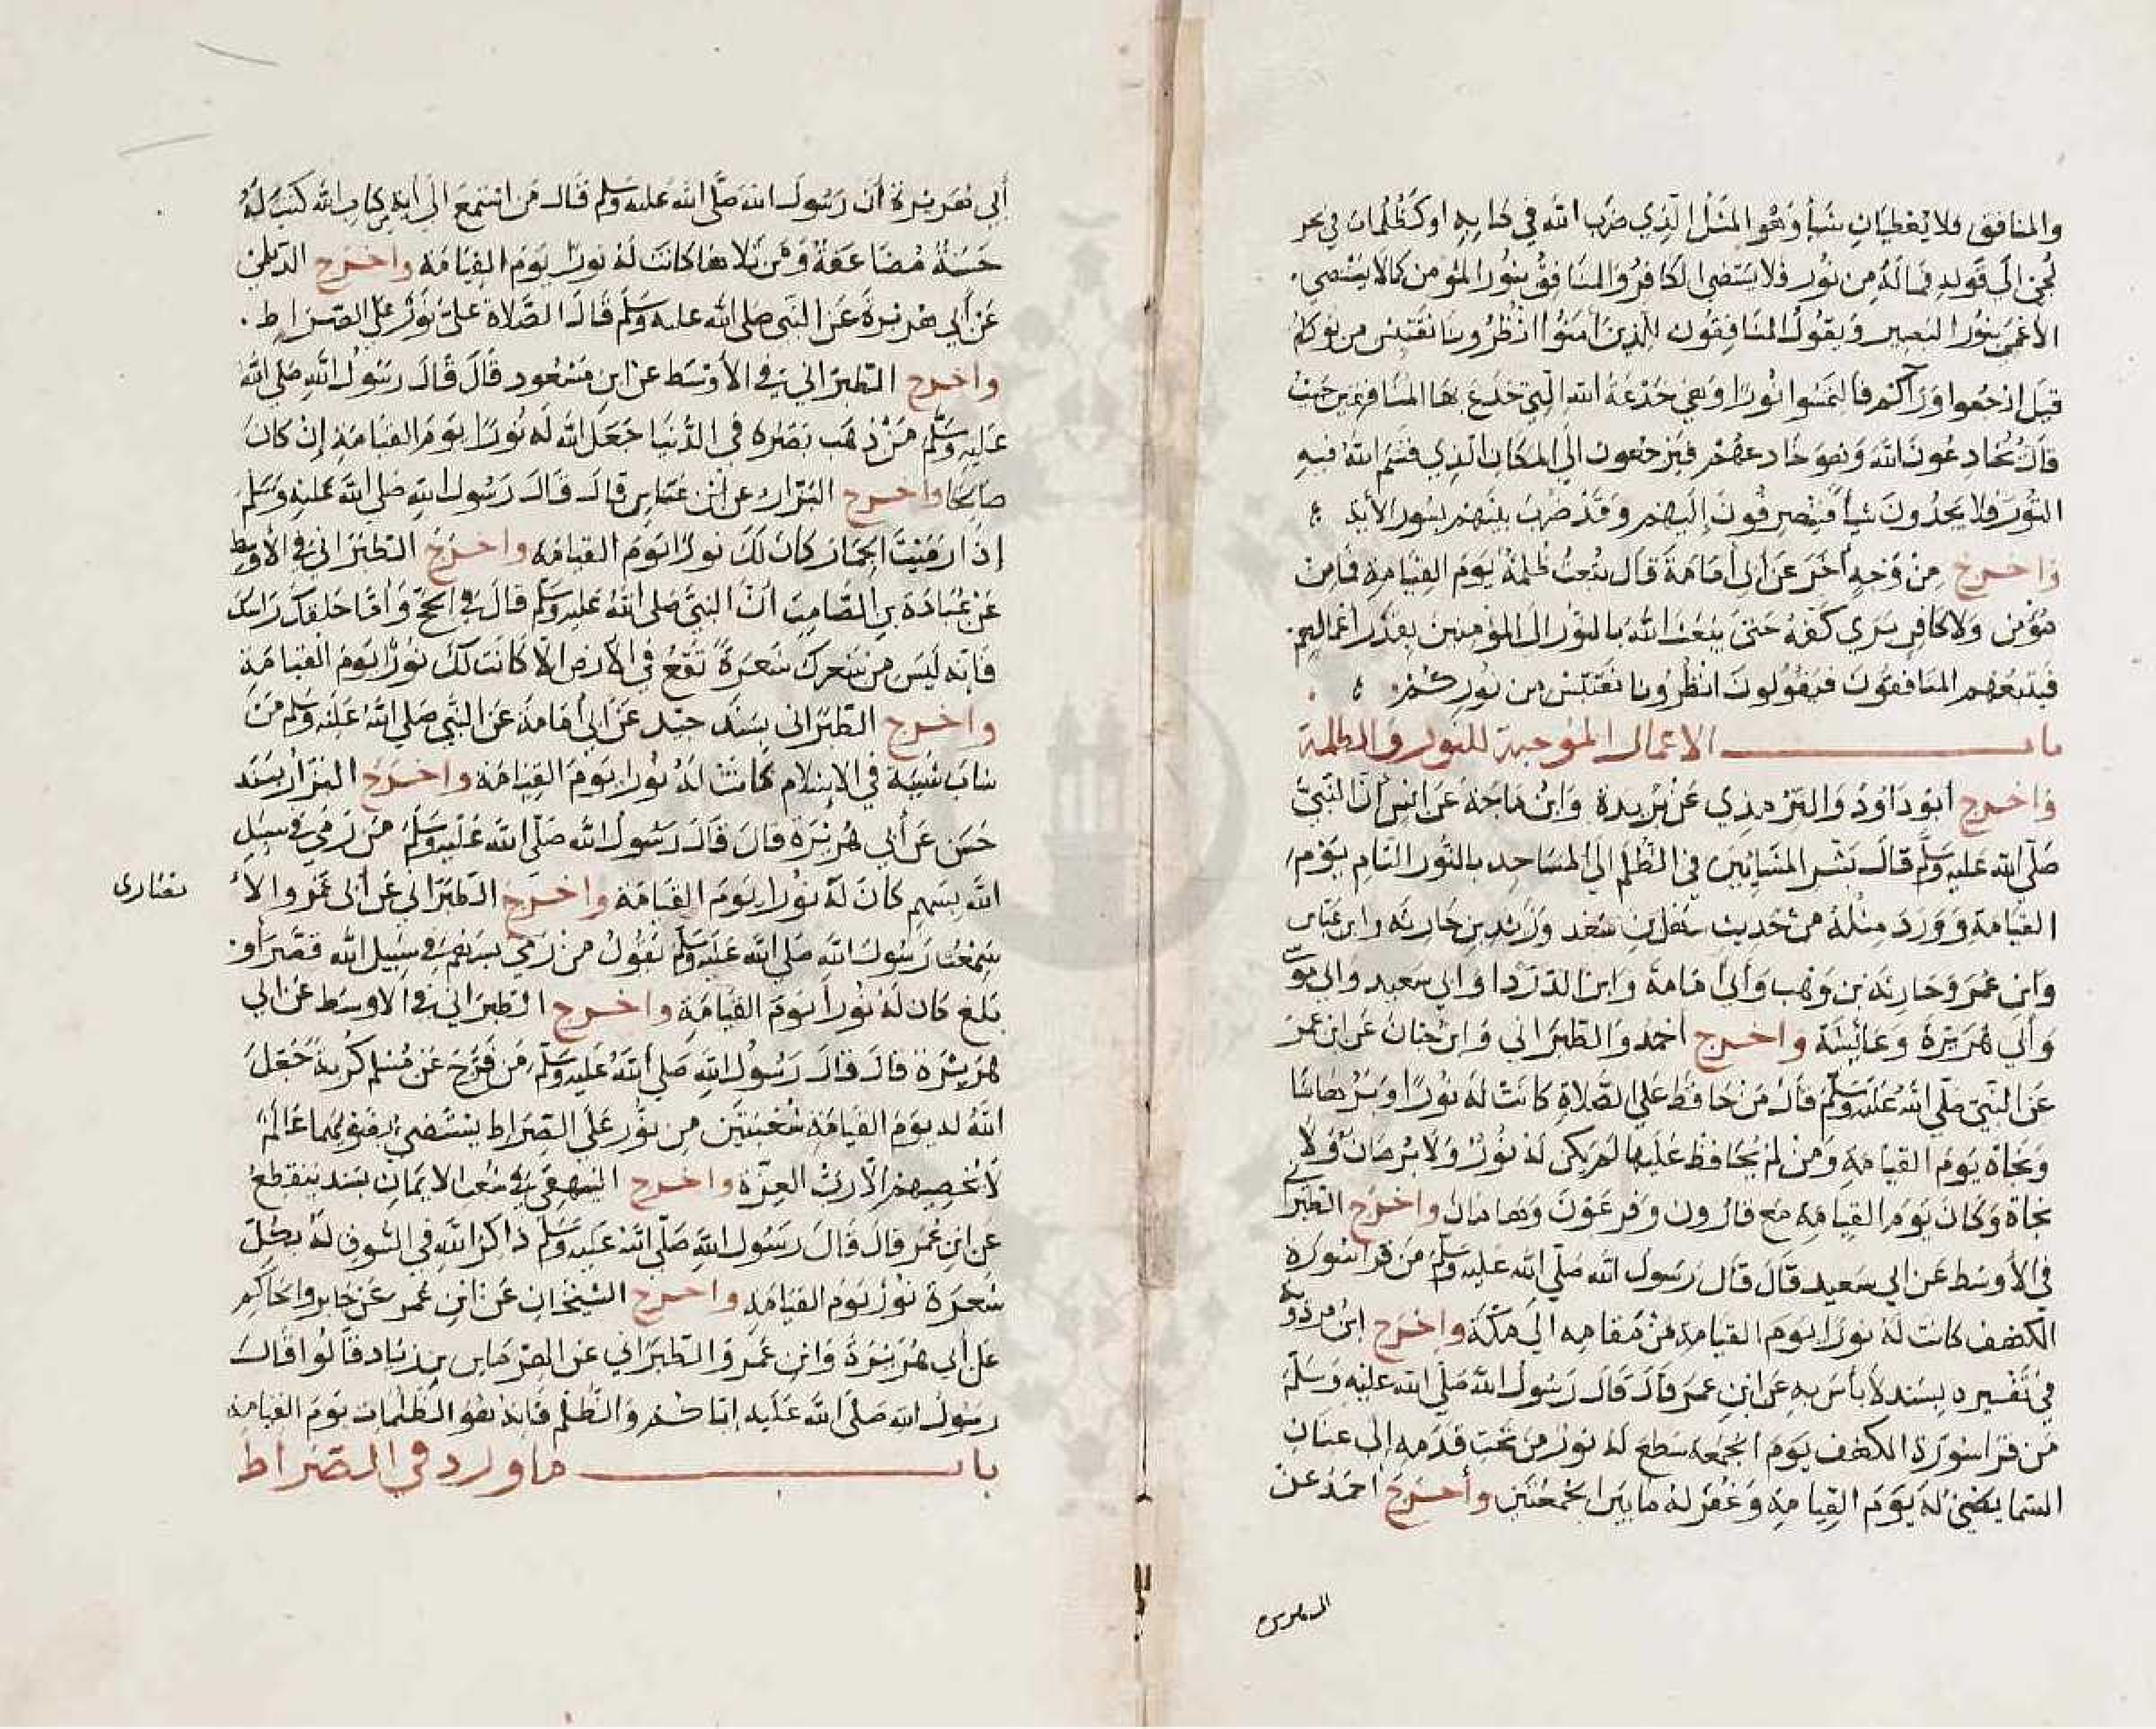 والمنافق فلا يعطيان شيأ وهو المثل الذي ضرب الله في كتابه او كظلمات في بحر
لجي الى قوله فما له من نور فلا يستضي الكافر والمنافق بنور المؤمن كما لا يستضي
الأعمى بنور البصير ويقول المنافقون للذين آمنوا انظرونا نقتبس من نوركم
قيل ارجعوا ورآكم فالتمسوا نورا وهي خدعة الله التي خدع بها المنافقين حيث
قال يخادعون الله وهو خادعهم فيرجعون الى المكان الذي قسم الله فيه
النور فلا يجدون شيأ فينصرفون إليهم وقد ضرب بينهم بسور الأية
واخرج من وجه أخر عن أبى أمامة قال تبعث ظلمة يوم القيامة فما من
مؤمن ولا كافر يرى كفه حتى يبعث الله بالنور الى المؤمنين بقدر أعمالهم
فيتبعهم المنافقون فيقولون انظرونا نقتبس من نوركم
باب الاعمال الموجبة للنور والظلمة
واخرج أبو داود والترمذي عن بريدة وابن ماجة عن انس أن النبي
صلى الله عليه وسلم قال بشر المشائين في الظلم الى المساجد بالنور التام يوم
القيامة وورد مثله من حديث سهل بن سعد وزيد بن حارثه وابن عباس
وابن عمر وحارثة بن وهب وأبى أمامة وابى الدردا وابي سعيد وابي موسى
وأبي هريرة وعائشة واخرج احمد والطبراني وابن حبان عن ابن عمر
عن النبي صلى الله عليه وسلم قال من حافظ على الصلاة كانت له نورا وبرهانا
ونجاة يوم القيامة ومن لم يحافظ عليها لم يكن له نور ولا برهان ولا
نجاة وكان يوم القيامة مع قارون وفرعون وهامان واخرج الطبراني
في الأوسط عن ابي سعيد قال قال رسول الله صلى الله عليه وسلم من قرا سورة
الكهف كانت له نورا يوم القيامة من مقامه الى مكة واخرج ابن مردويه
في تفسيره بسند لا بأس به عن ابن عمر قال قال رسول الله صلى الله عليه وسلم
من قرا سورة الكهف يوم الجمعة سطع له نور من تحت قدمه إلى عنان
السما يضئ له يوم القيامة وغفر له ما بين الجمعتين وأخرج احمد عن
أبي هريرة أن رسول الله صلى الله عليه وسلم قال من استمع الى اية من كتاب الله كتب له
حسنة مضاعفة ومن تلاها كانت له نورا يوم القيامة واخرج الديلمي
عن أبي هريرة عن النبي صلى الله عليه وسلم قال الصلاة علي نور على الصراط
واخرج الطبراني في الأوسط عن ابن مسعود قال قال رسول الله صلى الله
عليه وسلم من ذهب بصره في الدنيا جعل الله له نورا يوم القيامة إن كان
صالحا واخرج البزار عن ابن عباس قال قال رسول الله صلى الله عليه وسلم
إذا رميت الجمار كان لك نورا يوم القيامة واخرج الطبراني في الأوسط
عن عبادة بن الصامت أن النبي صلى الله عليه وسلم قال في الحج وأما حلقك راسك
فإنه ليس من شعرك شعرة تقع في الأرض الا كانت لك نورا يوم القيامة
واخرج الطبرانى بسند جيد عن ابى أمامة عن النبي صلى الله عليه وسلم من
شاب شيبة في الإسلام كانت له نورا يوم القيامة واخرج البزار بسند
حسن عن أبي هريرة قال قال رسول الله صلى الله عليه وسلم من رمى في سبيل
الله بسهم كان له نورا يوم القيامة واخرج الطبراني عن أبى عمرو الأ
نصاري
سمعت رسول الله صلى الله عليه وسلم يقول من رمى بسهم في سبيل الله فقصر أو
بلغ كان له نورا يوم القيامة واخرج الطبراني في الاوسط عن ابي
هريرة قال قال رسول الله صلى الله عليه وسلم من فرج عن مسلم كربة جعل
الله له يوم القيامة شعبتين من نور على الصراط يستضئ بضوئهما عالم
لا يحصيهم الا رب العزة واخرج البيهقي في شعب الايمان بسند منقطع
عن ابن عمر قال قال رسول الله صلى الله عليه وسلم ذاكر الله في السوق له بكل
شعرة نور يوم القيامة واخرج الشيخان عن ابن عمر عن جابر والحاكم
عن أبي هريرة وابن عمر والطبراني عن الهرماس بن زياد قالوا قال
رسول الله صلى الله عليه إياكم والظلم فإنه هو الظلمات يوم القيامة
باب ما ورد في الصراط